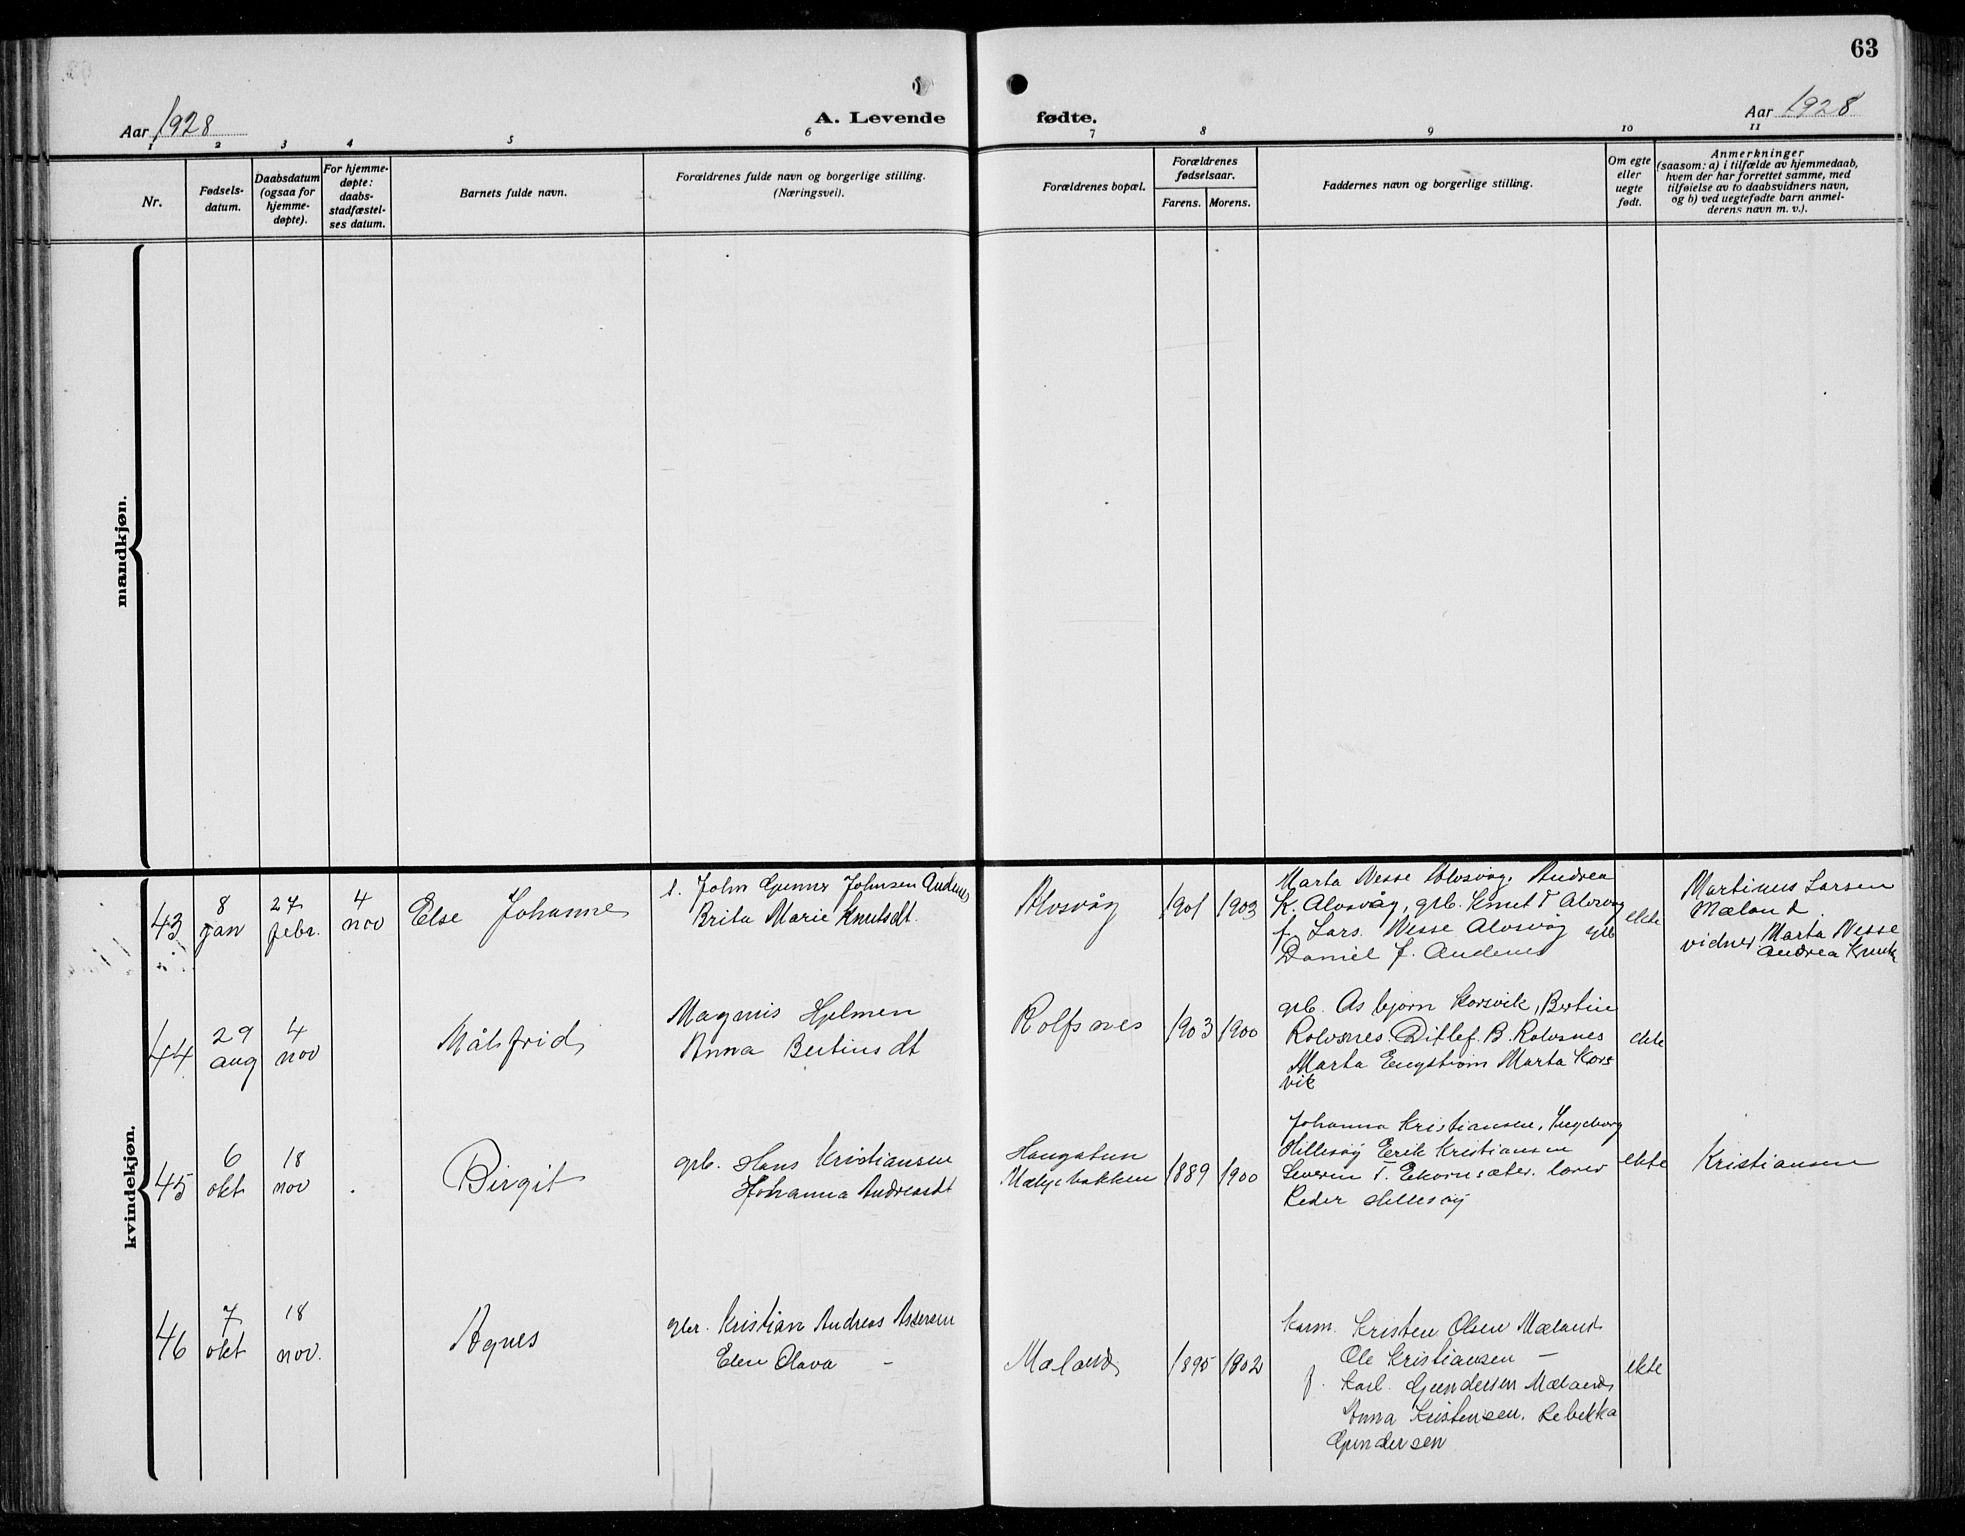 63
Aar 1928
A. Levende fødte.
Aar 1928
1 2 3 4 5 6 7 8 9 10 11
Nr.
Fødsels-
datum.
Daabsdatum
(ogsaa for
hjemme-
døpte).
For hjemme-
døpte:
daabs-
stadfæstel-
ses datum.
Barnets fulde navn.
Forældrenes fulde navn og borgerlige stilling.
(Næringsvei).
Forældrenes bopæl.
Forældrenes
fødselsaar.
Farens. Morens.
Faddernes navn og borgerlige stilling.
Om egte
eller
uegte
født.
Anmerkninger
(saasom: a) i tilfælde av hjemmedaab,
hvem der har forrettet samme, med
tilføielse av to daabsvidners navn,
og b) ved uegtefødte barn anmel-
derens navn m. v.).
mandkjøn.
kvindekjøn.
43
8
jan
27
febr.
4
nov
Else Johanne
John Gunner Johnsen Andenes
Brita Marie Knutsdt.
Alvsvåg
1901 1903
Marta Nesse Alvsvåg, Andrea
K. Alvsvåg, grb. Knut T Alvsvåg
f. Lars Nesse Alvsvåg grb
Daniel J. Andenes
ekte
Martinus Larsen
Mæland.
vidner Marta Nesse
Andrea Knuts
44
29
aug
4
nov
Målfrid
Magnus Hjelmen
Anna Bertinsdt
Rolfsnes
1903 1900
grb. Asbjørn Korsvik, Bertin
Rolvsnes. Ditlef. B. Rolvsnes
Marta Engstrøm Marta Kors
vik
ekte
45
6
okt
18
nov
Birgit
grb. Hans Kristiansen
Johanna Andreasdt
Haugatun
Mælebakken
1889 1900
Johanna Kristiansen, Ingeborg
Hillesøy Erik Kristiansen
Severin T. Ekornsæter. lærer
Peder Hillesøy
ekte
Kristiansen
46
7
okt
18
nov.
Agnes
gbr. Kristian Andreas Assersen
Elen Olava –
Mæland
1895 1902
karm. Kristen Olsen Mæland
Ole Kristiansen –
f. Karl Gundersen Mæland
Anna Kristensen. Rebekka
Gundersen
ekte